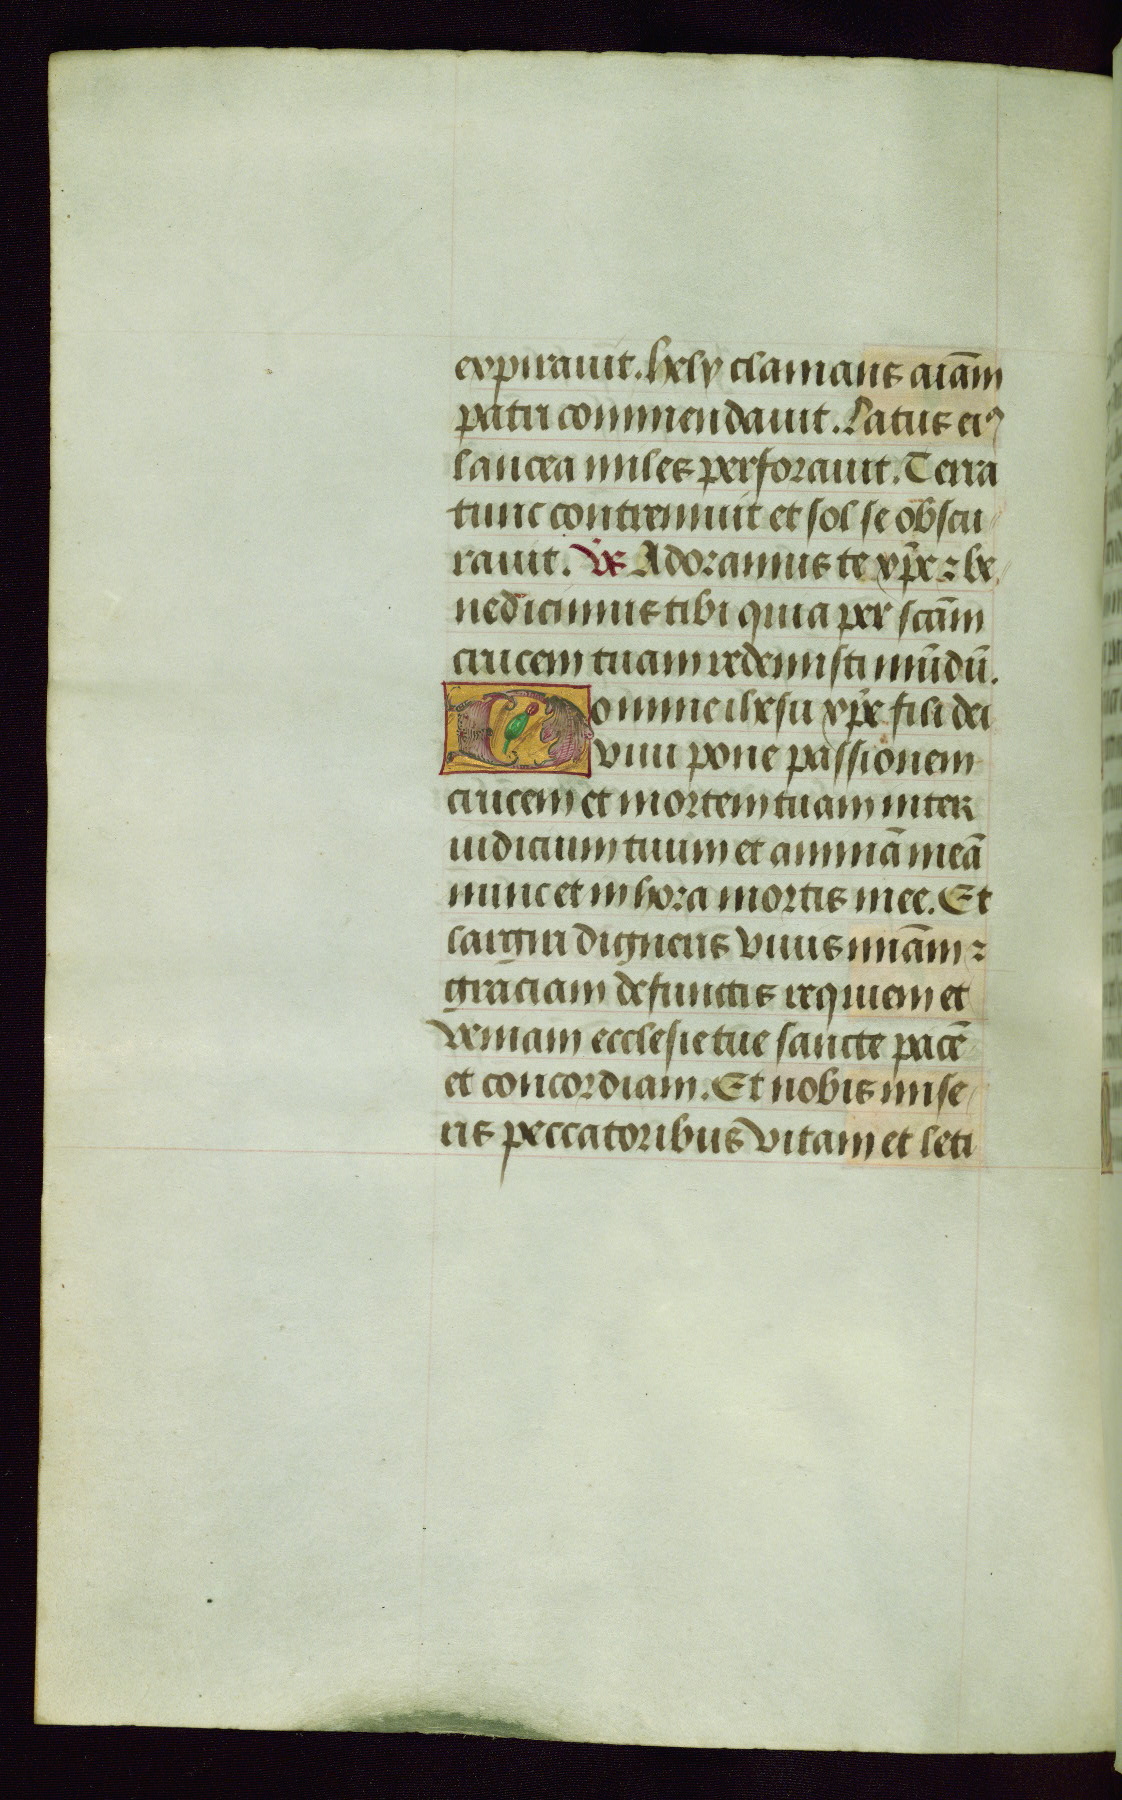 expirauit. hely clamans aīam
patri commendauit. Latus eiꝰ
lancea miles perforauit. Terra
tunc contremuit et sol se obscu
rauit. Vs Adoramus te xp̄e ⁊ be
nedicimus tibi quia per scām
crucem tuam redemisti mūdū.
Domine ihesu xp̄e fili dei
viui pone passionem
crucem et mortem tuam inter
iudicium tuum et animā meā
nunc et in hora mortis mee. Et
largiri digneris viuis miām ⁊
graciam defunctis requiem et
veniam ecclesie tue sancte pacē
et concordiam. Et nobis mise
ris peccatoribus vitam et leti